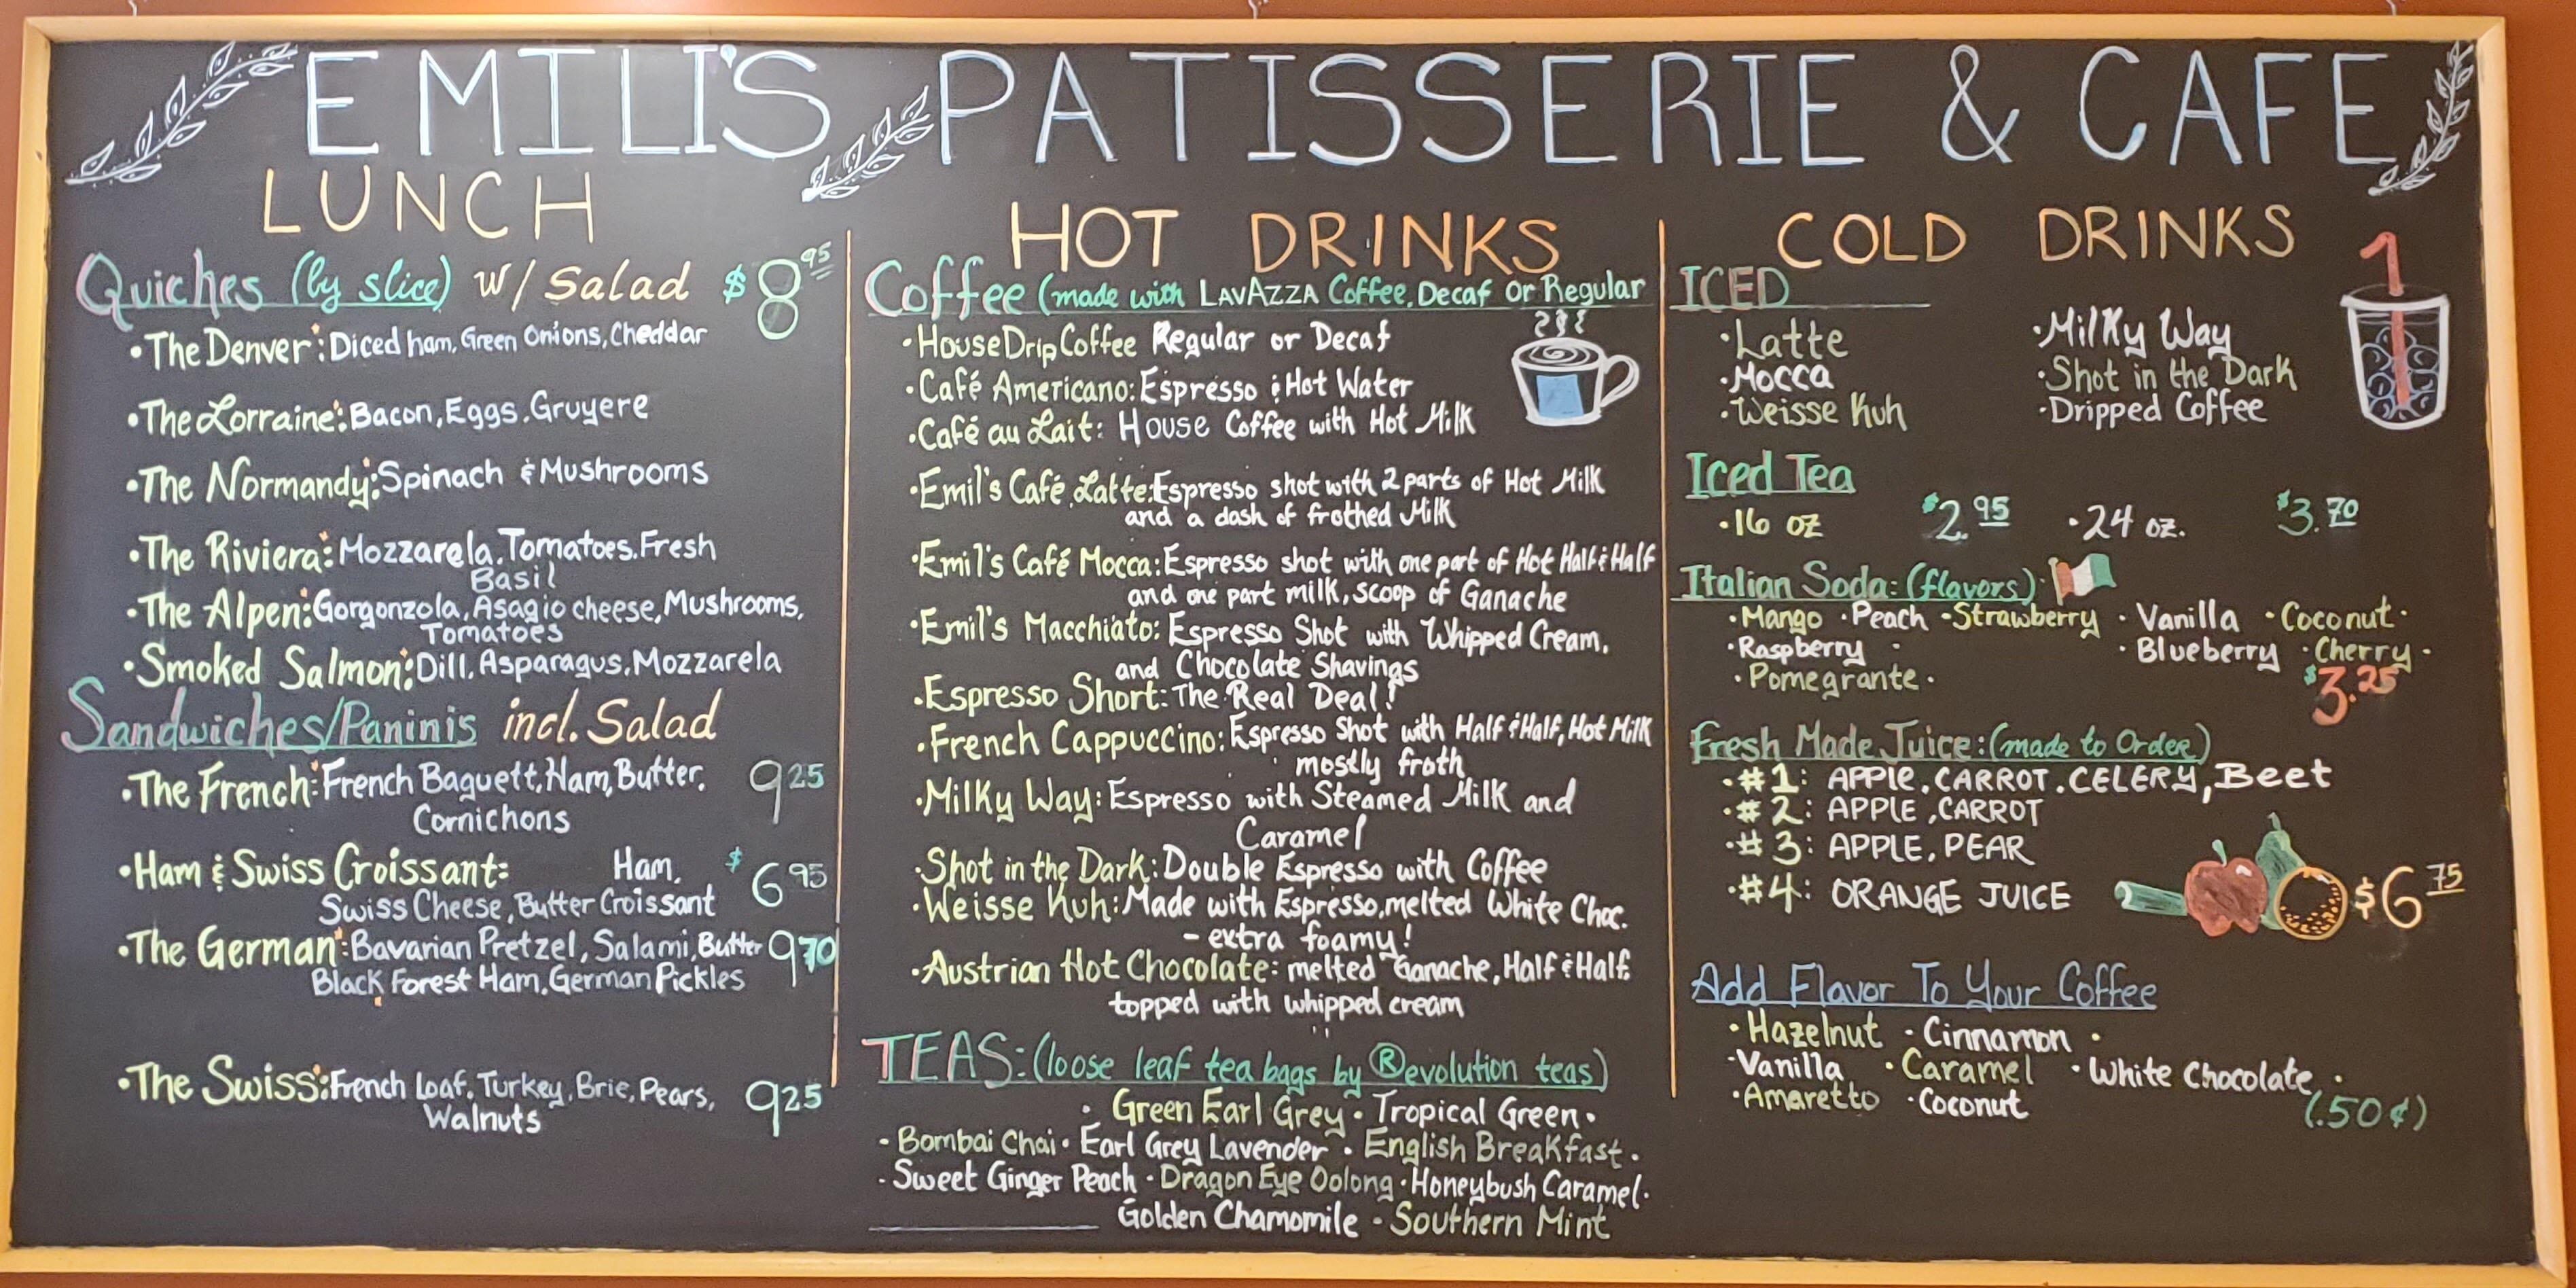 EMIL'S PATISSERIE & CAFE
LUNCH
Quiches (by slice) w/ Salad $8.95
• The Denver: Diced ham, Green Onions, Cheddar
• The Lorraine: Bacon, Eggs, Gruyere
• The Normandy: Spinach & Mushrooms
• The Riviera: Mozzarela, Tomatoes, Fresh
Basil
• The Alpen: Gorgonzola, Asagio cheese, Mushrooms,
Tomatoes
• Smoked Salmon: Dill, Asparagus, Mozzarela
Sandwiches/Paninis incl. Salad
• The French: French Baguett, Ham, Butter, 9 25
Cornichons
• Ham & Swiss Croissant: Ham, $6 95
Swiss Cheese, Butter Croissant
• The German: Bavarian Pretzel, Salami, Butter 9 70
Black Forest Ham, German Pickles
• The Swiss: French Loaf, Turkey, Brie, Pears, 9 25
Walnuts
HOT DRINKS
Coffee (made with LAVAZZA Coffee, Decaf or Regular
• House Drip Coffee Regular or Decaf
• Café Americano: Espresso & Hot Water
• Café au Lait: House Coffee with Hot Milk
• Emil's Café Latte: Espresso shot with 2 parts of Hot Milk
and a dash of frothed Milk
• Emil's Café Mocca: Espresso shot with one part of Hot Half & Half
and one part milk, scoop of Ganache
• Emil's Macchiato: Espresso Shot with Whipped Cream,
and Chocolate Shavings
• Espresso Short: The Real Deal!
• French Cappuccino: Espresso Shot with Half & Half, Hot Milk
mostly froth
• Milky Way: Espresso with Steamed Milk and
Caramel
• Shot in the Dark: Double Espresso with Coffee
• Weisse Kuh: Made with Espresso, melted White Choc.
- extra foamy!
• Austrian Hot Chocolate: melted Ganache, Half & Half,
topped with whipped cream
TEAS: (loose leaf tea bags by ®evolution teas)
• Green Earl Grey • Tropical Green •
- Bombai Chai • Earl Grey Lavender • English Breakfast •
- Sweet Ginger Peach • Dragon Eye Oolong • Honeybush Caramel •
Golden Chamomile - Southern Mint
COLD DRINKS
ICED
• Latte • Milky Way
• Mocca • Shot in the Dark
• Weisse Kuh • Dripped Coffee
Iced Tea
• 16 oz $2.95 • 24 oz. $3.70
Italian Soda: (flavors)
• Mango • Peach • Strawberry • Vanilla • Coconut •
• Raspberry • • Blueberry • Cherry •
• Pomegrante • $3.25
Fresh Made Juice: (made to Order)
• #1: APPLE, CARROT, CELERY, Beet
• #2: APPLE, CARROT
• #3: APPLE, PEAR
• #4: ORANGE JUICE $6 75
Add Flavor To Your Coffee
• Hazelnut • Cinnamon •
• Vanilla • Caramel • White Chocolate •
• Amaretto • Coconut (.50¢)